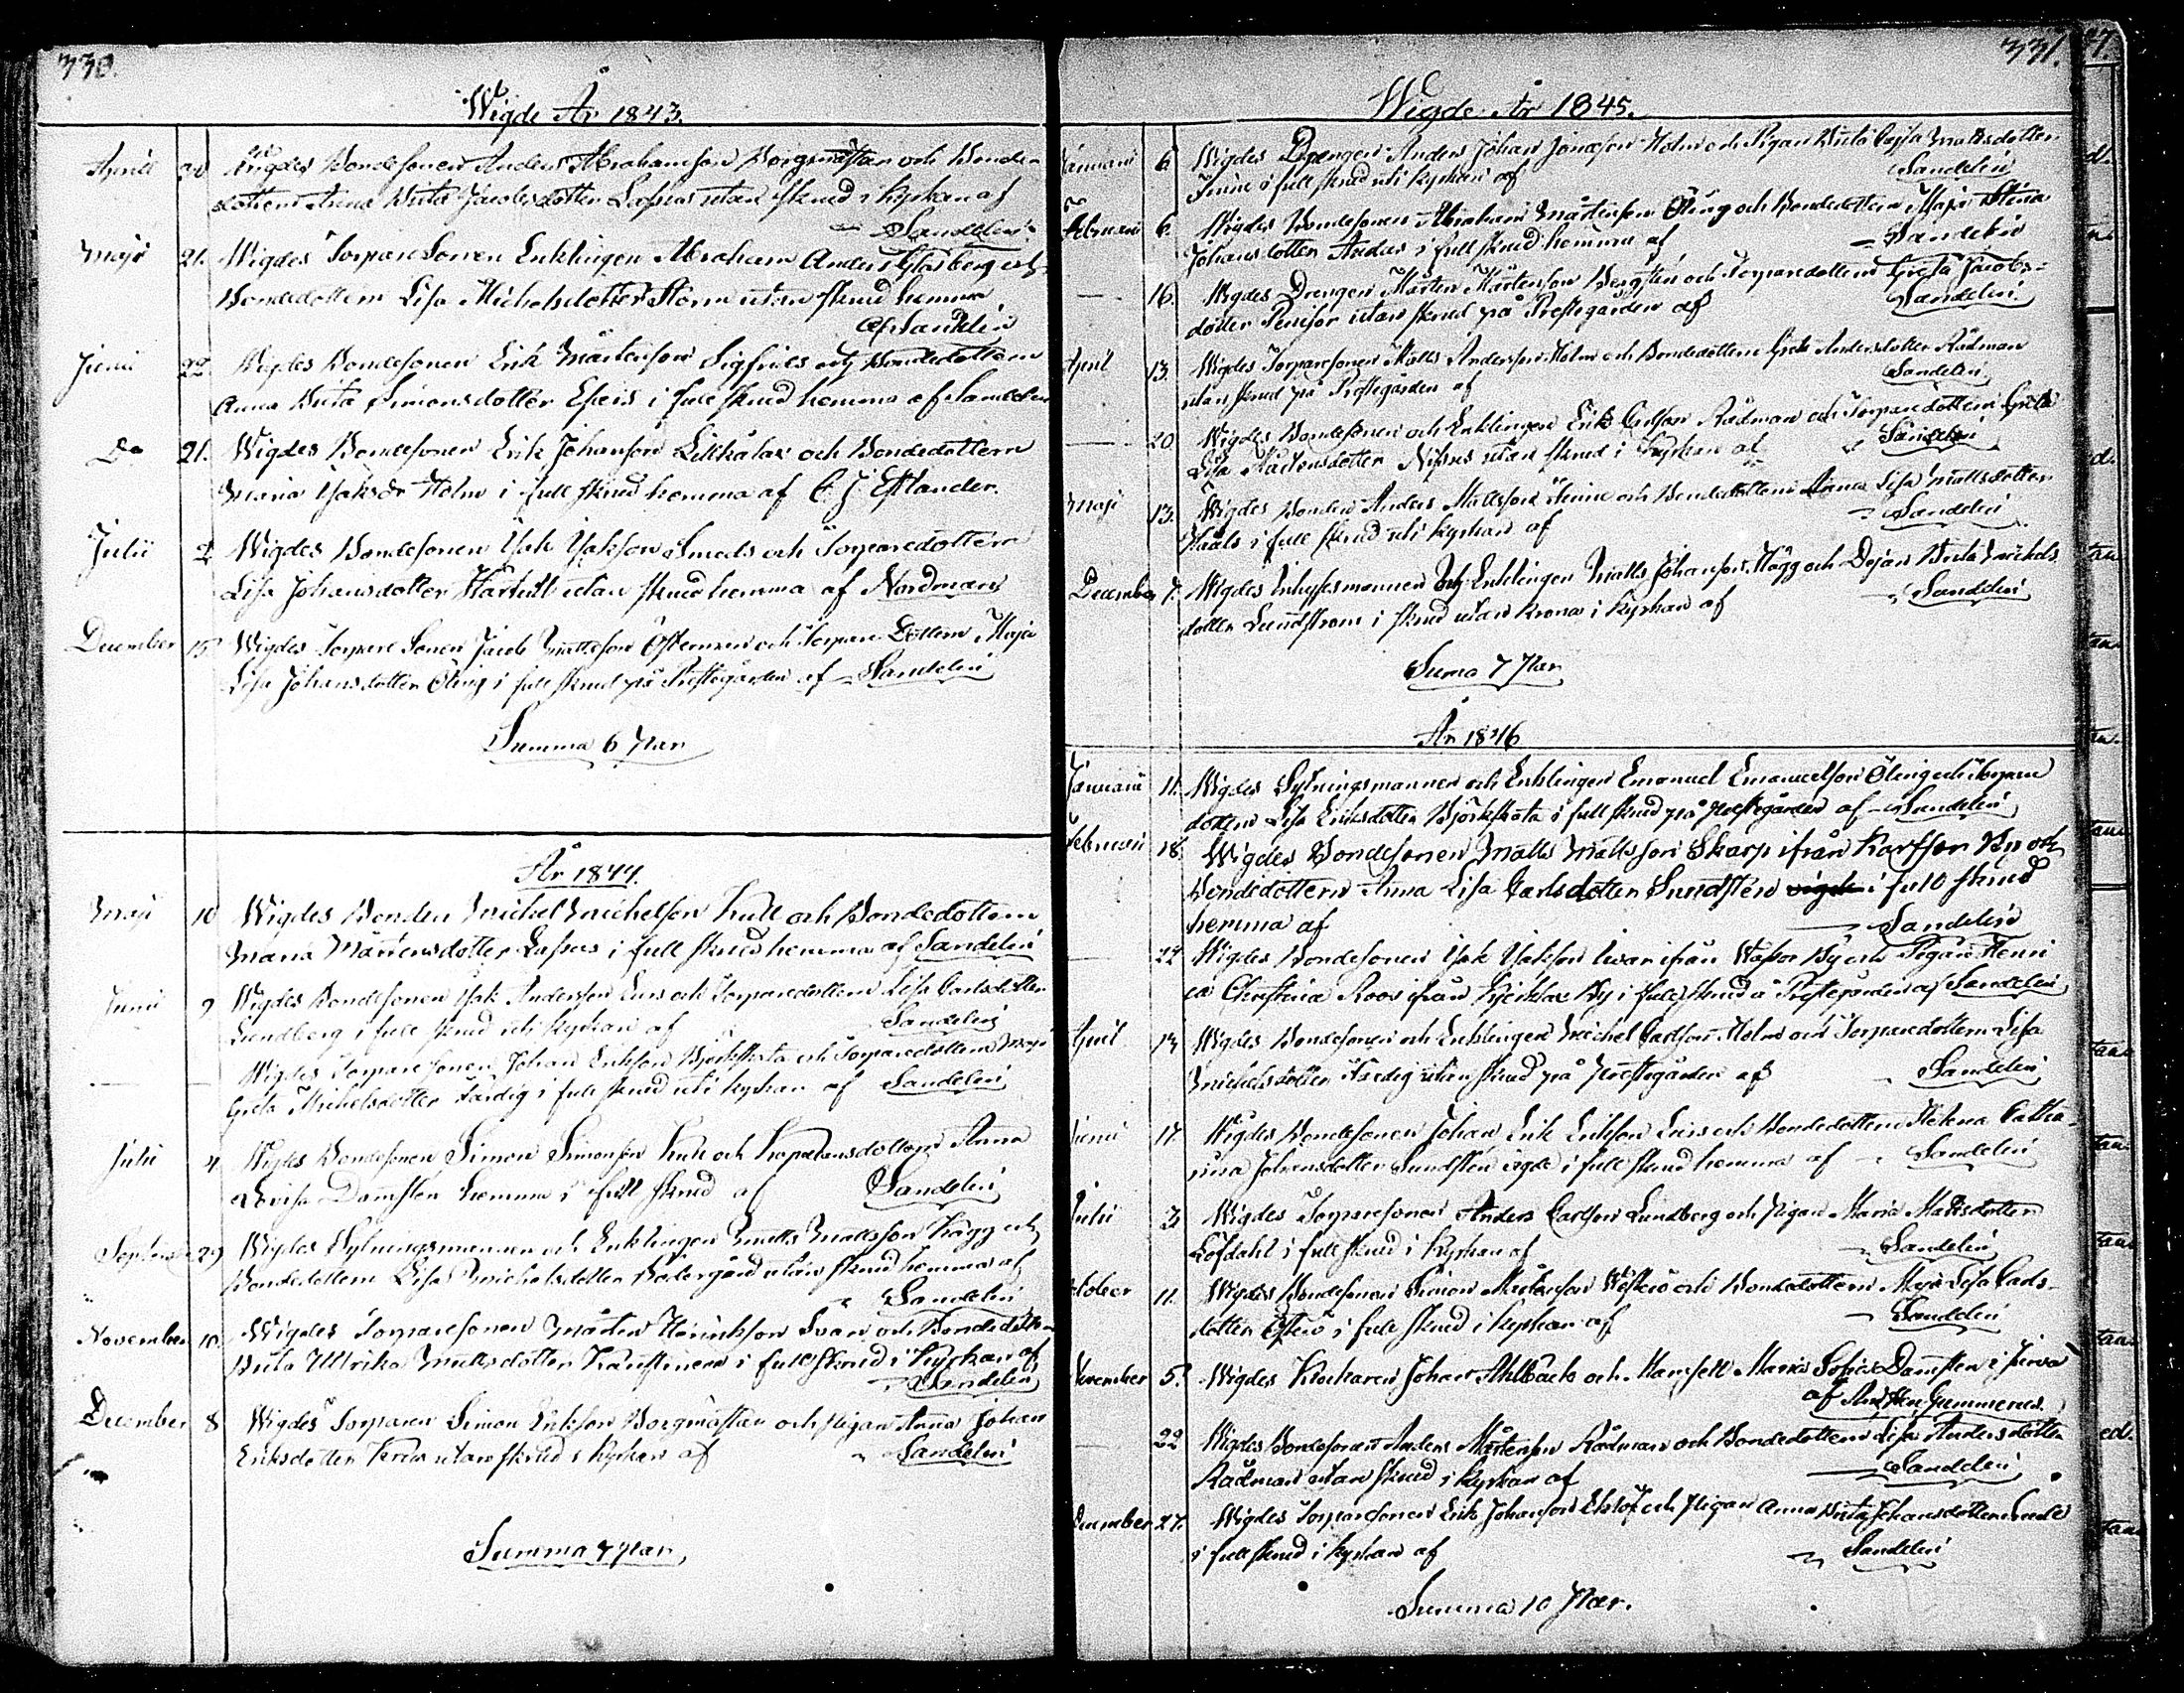 330.
Wigde År 1843.
April 30 Wigdes Bondesonen Anders Abrahamson Borgmästar och Bonde-
dottern Anna Brita Jacobsdotter Lassus utan skrud i kyrkan af
Sandelin
Maji 21. Wigdes Torpare Sonen Enklingen Abraham Anders Glasberg och
Bondedottern Lisa Michelsdotter Storm utan skrud hemma
af Sandelin
Junii 22 Wigdes Bondesonen Erik Mårtenson Sigfrids och Bondedottern
Anna Brita Simonsdotter i full skrud hemma af Sandelin
Do 21. Wigdes Bondesonen Erik Johanson och Bondedottern
Maria Isaksdr Holm i full skrud hemma af C. J. Estlander.
Julii 2 Wigdes Bondesonen Isak Isakson Smeds och Torparedottern
Lisa Johansdotter utan skrud hemma af Nordman
December 15 Wigdes Torpare Sonen Jacob Mattsson Österman och Torpare Dottern Maja
Lisa Johansdotter Öling i full skrud på Prestegården af Sandelin
Summa 6 Par
År 1844.
Maji 10 Wigdes Bonden Michel Michelson Kull och Bondedottern
Maria Mårtensdotter Lassus i full skrud hemma af Sandelin
Junii 9 Wigdes Bondesonen Isak Anderson Ers och Torparedottern Lisa Carlsdotter
Lundberg i full skrud uti kyrkan af Sandelin
Wigdes Torpare sonen Johan Erikson Björkskata och Torparedottern Maja
Greta Michelsdotter Färdig i full skrud uti kyrkan af Sandelin
Julii 4 Wigdes Bondesonen Simon Simonson Kull och Kapelansdottern Anna
Lovisa Damsten hemma i full skrud af Sandelin
September 29 Wigdes Sytningsmannen och Enklingen Matts Mattsson Hägg och
Bondedottern Lisa Michelsdotter Södergård utan skrud hemma af
Sandelin
November 10. Wigdes Torparesonen Mårten Henrikson Svan och Bondedottern
Brita Ulrika Mattsdotter i full skrud i kyrkan af
Sandelin
December 8 Wigdes Torparen Simon Erikson Borgmästar och Pigan Anna Johan
Eriksdotter utan skrud i kyrkan af Sandelin
Summa 7 Par
331.
Wigde År 1845.
Januarii 6 Wigdes Drengen Anders Johan Jonasson Holm och Pigan Brita Cajsa Mattsdotter
i full skrud uti kyrkan af Sandelin
Februarii 6. Wigdes Bondesonen Abraham Mårtenson Öling och Bondedottern Maja Stina
Johansdotter Andas i full skrud hemma af Sandelin
16. Wigdes Drengen Mårten Mårtenson Bergsten och Torparedottern Greta Jacobs-
dotter utan skrud på Prestegården af Sandelin
April 13. Wigdes Torparesonen Matts Anderson Holm och Bondedottern Greta Andersdotter Rådman
utan skrud på Prestegården af Sandelin
20 Wigdes Bondesonen och Enklingen Erik Carlson Rådman och Torparedottern Greta
Lisa Mårtensdotter utan skrud i kyrkan af Sandelin
Maji 13. Wigdes Bonden Anders Mattsson och Bondedottern Anna Lisa Mattsdotter
i full skrud uti kyrkan af Sandelin
December 7. Wigdes Inhysesmannen och Enklingen Matts Johanson Hägg och Dejan Brita Michels
dotter Lundstrom i skrud utan krona i kyrkan af Sandelin
Suma 7 Par
År 1846
Januarii 11. Wigdes Sytningsmannen och Enklingen Emanuel Emanuelson Öling och Torpare
dottern Lisa Eriksdotter Björkskata i full skrud på prestegården af Sandelin
Februarii 18. Wigdes Bondesonen Matts Mattsson Skarp ifrån Karssor By och
Bondedottern Anna Lisa Carlsdotter Sundsten vigde i full skrud
hemma af Sandelin
22 Wigdes Bondesonen Isak Isakson ifrån Wassor By och Pigan Henri
ca Christina Roos ifrån By i full skrud å Prestegården af Sandelin
April 13 Wigdes Bondesonen och Enklingen Michel Carlson Holm och Torparedottern Lisa
Michelsdotter Färdig utan skrud på prestegården af Sandelin
Junii 17. Wigdes Bondesonen Johan Erik Erikson Ers och Bondedottern Helena Catha-
rina Johansdotter Sundsten vigde i full skrud hemma af Sandelin
Julii 3 Wigdes Torparesonen Anders Carlson Lundberg och pigan Maria Mattsdotter
Löfdahl i full skrud i kyrkan af Sandelin
October 11. Wigdes Bondesonen Simon Mårtenson och Bondedottern Maja Lisa Carls-
dotter i full skrud i kyrkan af Sandelin
November 5. Wigdes Klockaren Johan Ahlbäck och Mamsell Maria Sofia Damsten i
af Gummerus.
22 Wigdes Bondesonen Anders Mårtenson Rådman och Bondedottern Lisa Andersdotter
Rådman utan skrud i kyrkan af Sandelin
December 27. Wigdes Torparesonen Erik Johanson Eklöf och Pigan Anna Brita Johansdotter
i full skrud i kyrkan af Sandelin
Summa 10 Par.